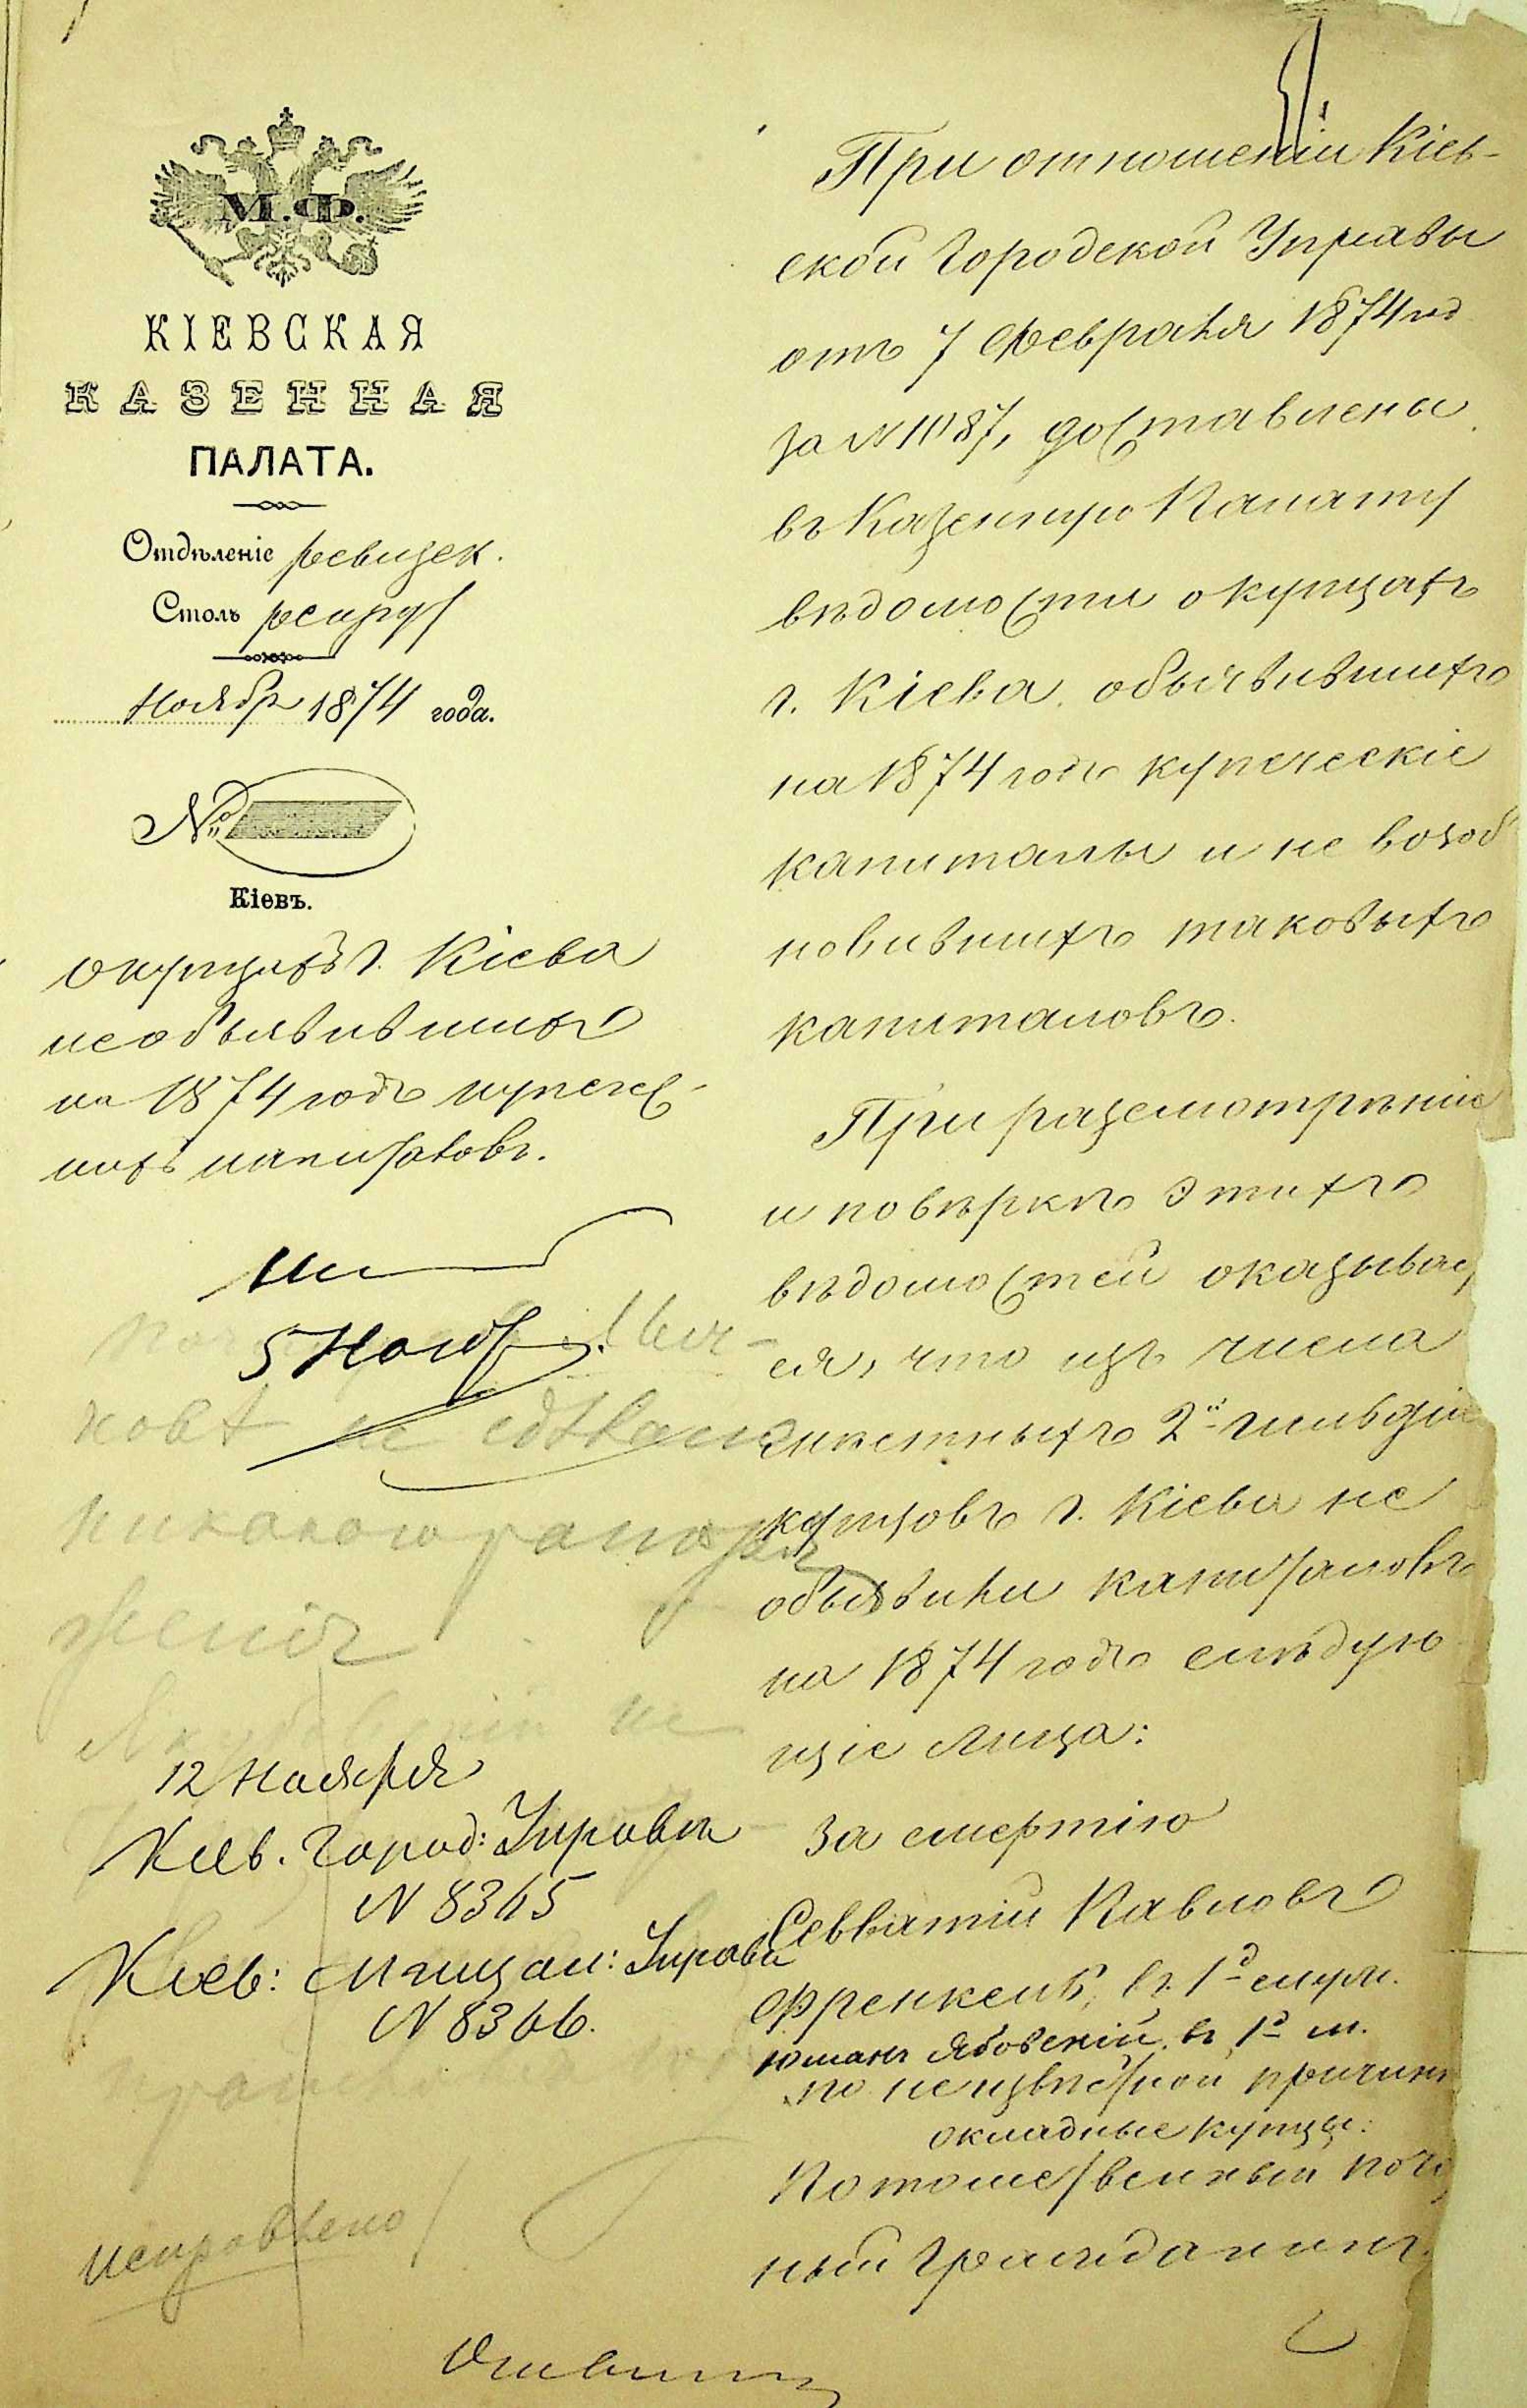 М.Ф.
КІЕВСКАЯ
КАЗЕННАЯ
ПАЛАТА.
Отдѣленіе ревизск.
Столъ
Ноябр 1874 года.
№
Кіевъ.
О купцахъ г. Кіева
необъявившихъ
на 1874 годъ купеческ-
ихъ капиталовъ.
5 Нояб
никакого
женія
12 Ноября
Кіев. Город: Управѣ
N 8365
Кіев: Мѣщан: Управѣ
N 8366.
исправлено
При отношеніи Кіев-
ской Городской Управы
отъ 7 Февраля 1874 год
за N 1187, доставлены
въ Казенную Палату
вѣдомости о купцахъ
г. Кіева объявившихъ
на 1874 годъ купеческіе
капиталы и не возоб
новившихъ таковыхъ
капиталовъ.
При разсмотрѣніи
и повѣркѣ этихъ
вѣдомостей оказывает
ся, что изъ числа
мѣстныхъ 2й гильдіи
купцовъ г. Кіева не
объявили капиталовъ
на 1874 годъ слѣдую
щіе лица:
За смертію
Севватій Павловъ
Френкель, въ 1й
въ 1й
по неизвѣстной причинѣ
окладные купцы:
Потомственный поче
ный Гражданинъ